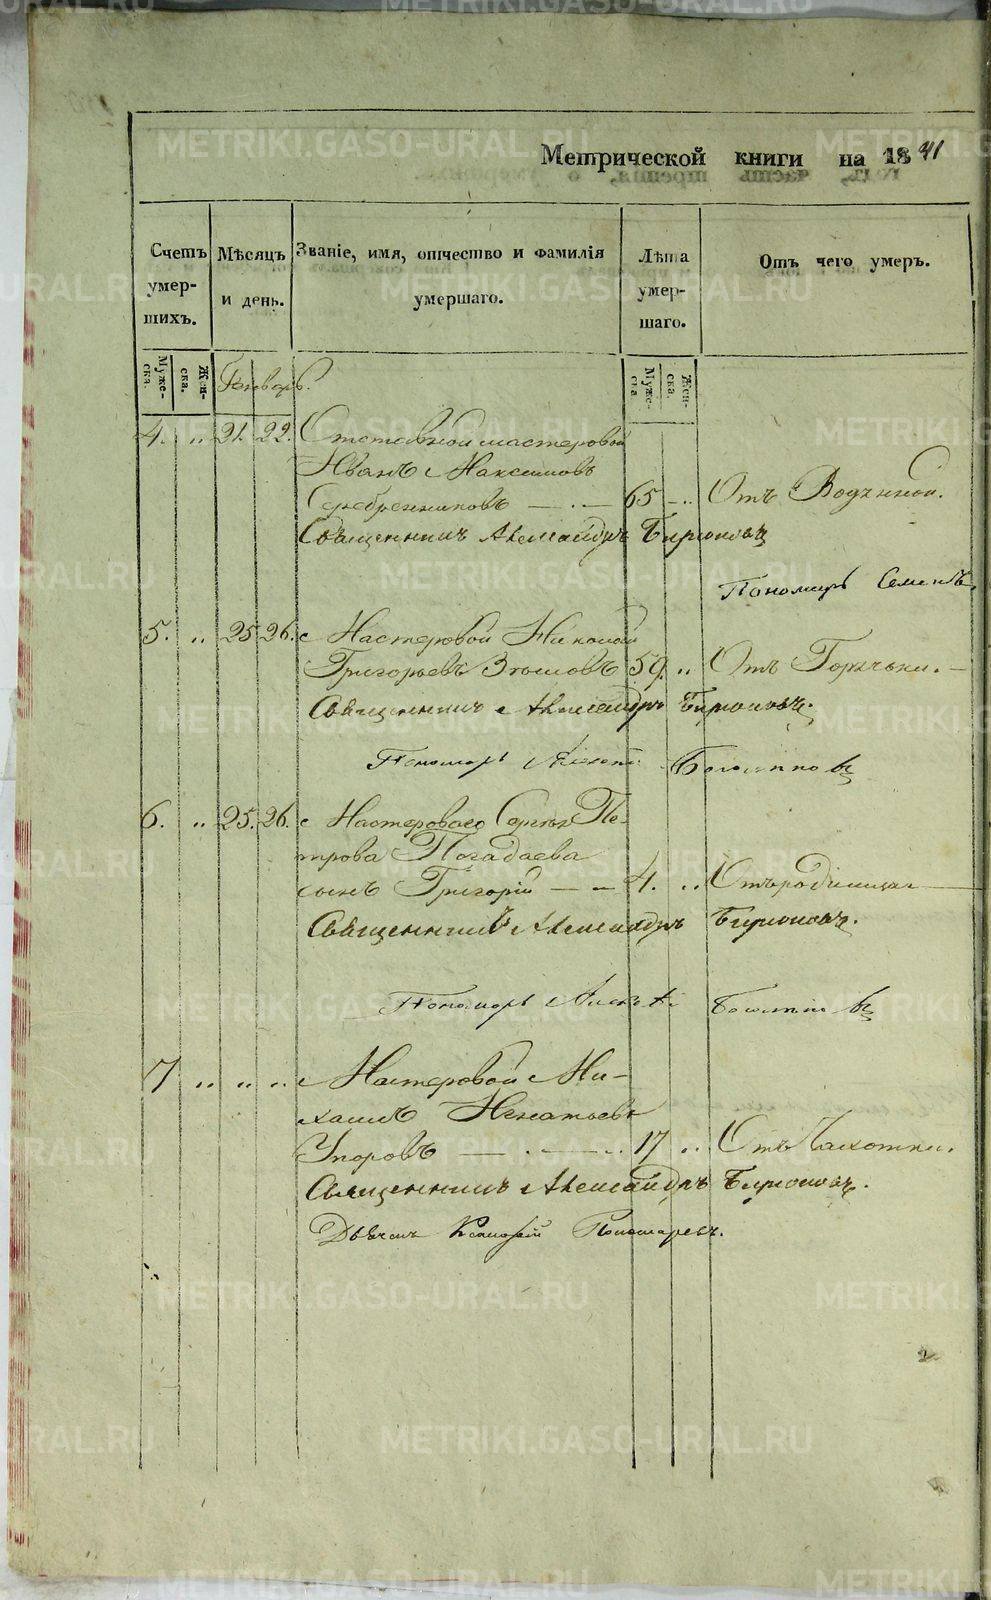 METRIKI.GASO-URAL.RU
Метрической книги на 1841
Счетъ умер-шихъ.
Мѣсяцъ и день.
Званіе, имя, отчество и фамилія умершаго.
Лѣта умер-шаго.
Отъ чего умеръ.
Муже-ска.
Жен-ска.
Генварь.
Муже-ска
Жен-ска.
4. „ 21. 22. Отставной мастеровой
Иванъ Максимовъ
Серебренниковъ — 65 „ Отъ Водяной.
Священникъ Александръ Бирюковъ
Пономарь Семенъ
5. „ 25 26. Мастеровой Николай
Григорьевъ 59. „ Отъ Горячки.
Священникъ Александръ Бирюковъ.
Пономарь
6. „ 25. 26. Мастероваго Сергѣя Пе-
трова Погадаева
сынъ Григорій — 4. „ Отъ родимца
Священникъ Александръ Бирюковъ.
Пономарь
7 „ „ „ Мастеровой Ми-
хаилъ Игнатьевъ
Упоровъ — 17 „ Отъ Чахотки.
Священникъ Александръ Бирюковъ.
Дьячокъ Пономаревъ.